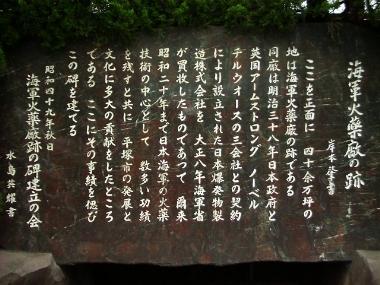 海軍火薬廠の跡
岸本登書
ここを正面に 四十余万坪の
地は海軍火薬廠の跡である
同廠は明治三十八年日本政府と
英国アームストロング ノーベル
チルウォースの三会社との契約
により設立された日本爆発物製
造株式会社を 大正八年海軍省
が買收したものであつて 爾来
昭和二十年まで日本海軍の火薬
技術の中心として 数多い功績
を残すと共に 平塚市の発展と
文化に多大の貢献をしたところ
である ここにその事績を偲び
この碑を建てる
昭和四十九年秋日
海軍火薬廠跡の碑建立の会
水島共耀書